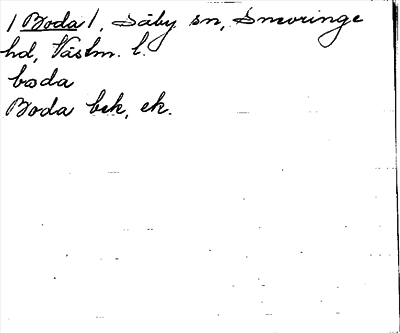 /Boda/, Säby sn, Snevringe
hd, Västm. l.
boda
Boda bek, ek.